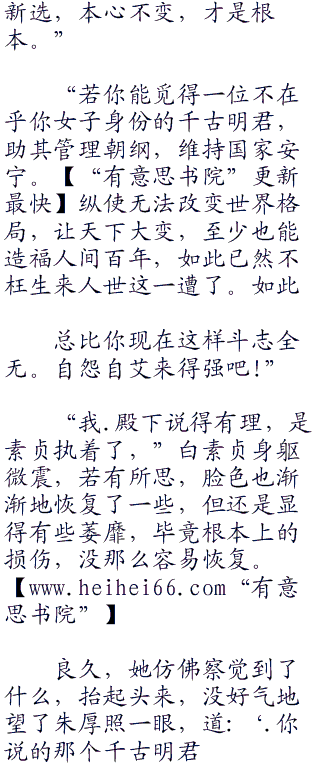 新选，本心不变，才是根
本。”
“若你能觅得一位不在
乎你女子身份的千古明君，
助其管理朝纲，维持国家安
宁。【“有意思书院”更新
最快】纵使无法改变世界格
局，让天下大变，至少也能
造福人间百年，如此已然不
枉生来人世这一遭了。如此
总比你现在这样斗志全
无。自怨自艾来得强吧!”
“我.殿下说得有理，是
素贞执着了，”白素贞身躯
微震，若有所思，脸色也渐
渐地恢复了一些，但还是显
得有些萎靡，毕竟根本上的
损伤，没那么容易恢复。
【www.heihei66.com“有意
思书院”】
良久，她仿佛察觉到了
什么，抬起头来，没好气地
望了朱厚照一眼，道:‘.你
说的那个千古明君